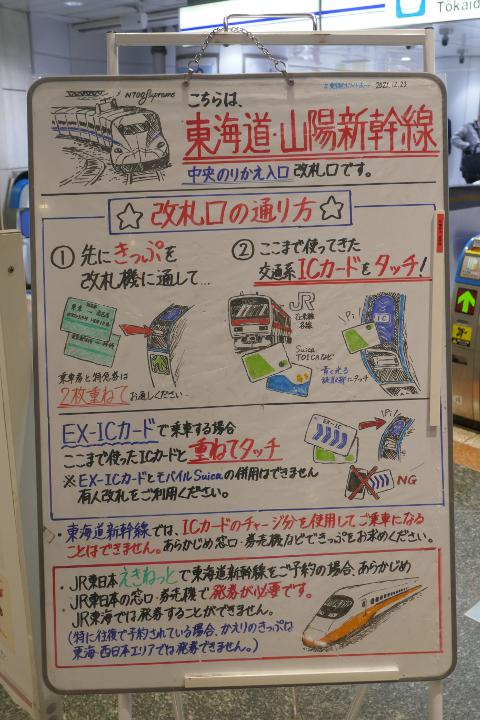 Tōkaid
N700Supreme
2021.12.23
こちらは、
東海道・山陽新幹線
中央のりかえ入口 改札口です。
☆改札口の通り方☆
① 先にきっぷを
改札機に通して…
乗車券と特急券は
2枚重ねてお通しください…
② ここまで使ってきた
交通系ICカードをタッチ!
JR
在来線
各線
Suica
TOICAなど
Pi
IC
青く光る
読取部にタッチ
EX-ICカードで乗車する場合
ここまで使ったICカードと重ねてタッチ
※EX-ICカードとモバイルSuicaの併用はできません
有人改札をご利用ください。
EX-IC
Pi
NG
・東海道新幹線では、ICカードのチャージ分を使用してご乗車になる
ことはできません。あらかじめ窓口・券売機などできっぷをお求めください。
・JR東日本えきねっとで東海道新幹線をご予約の場合、あらかじめ
JR東日本の窓口・券売機で発券が必要です。
JR東海では発券することができません。
(特に往復で予約されている場合、かえりのきっぷは
東海・西日本エリアでは発券できません。)